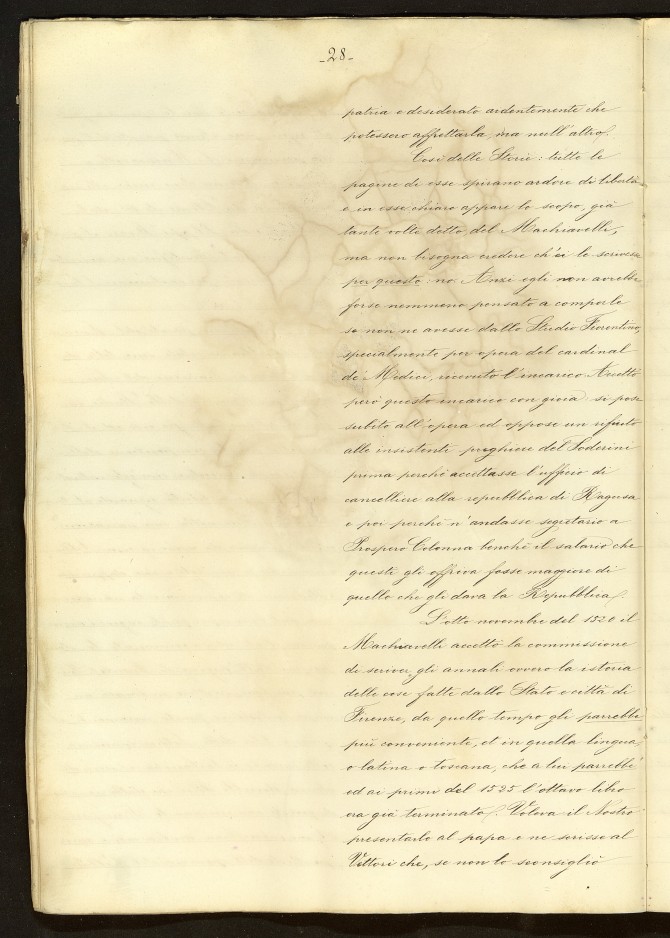 -28-
patria e desiderato ardentemente che
potessero affrettarla, ma null'altro.
Così delle Storie: tutte le
pagine di esse spirano ardore di libertà
e in esse chiaro appare lo scopo, già
tante volte detto, del Machiavelli,
ma non bisogna credere ch'ei le scrivesse
per questo: no. Anzi egli non avrebbe
forse nemmeno pensato a comporle
se non ne avesse dallo Studio Fiorentino,
specialmente per opera del cardinal
de' Medici, ricevuto l'incarico. Accettò
però questo incarico con gioia: si pose
subito all'opera ed oppose un rifiuto
alle insistenti preghiere del Soderini
prima perchè accettasse l'ufficio di
cancelliere alla repubblica di Ragusa
e poi perchè n'andasse segretario a
Prospero Colonna benchè il salario che
questi gli offriva fosse maggiore di
quello che gli dava la Repubblica.
L'otto novembre del 1520 il
Machiavelli accettò la commissione
di scriver gli annali ovvero la istoria
delle cose fatte dallo Stato e città di
Firenze, da quello tempo gli parrebbe
più conveniente, et in quella lingua,
o latina o toscana, che a lui parrebbe
ed ai primi del 1525 l'ottavo libro
era già terminato. Voleva il Nostro
presentarlo al papa e ne scrisse al
Vettori che, se non lo sconsigliò